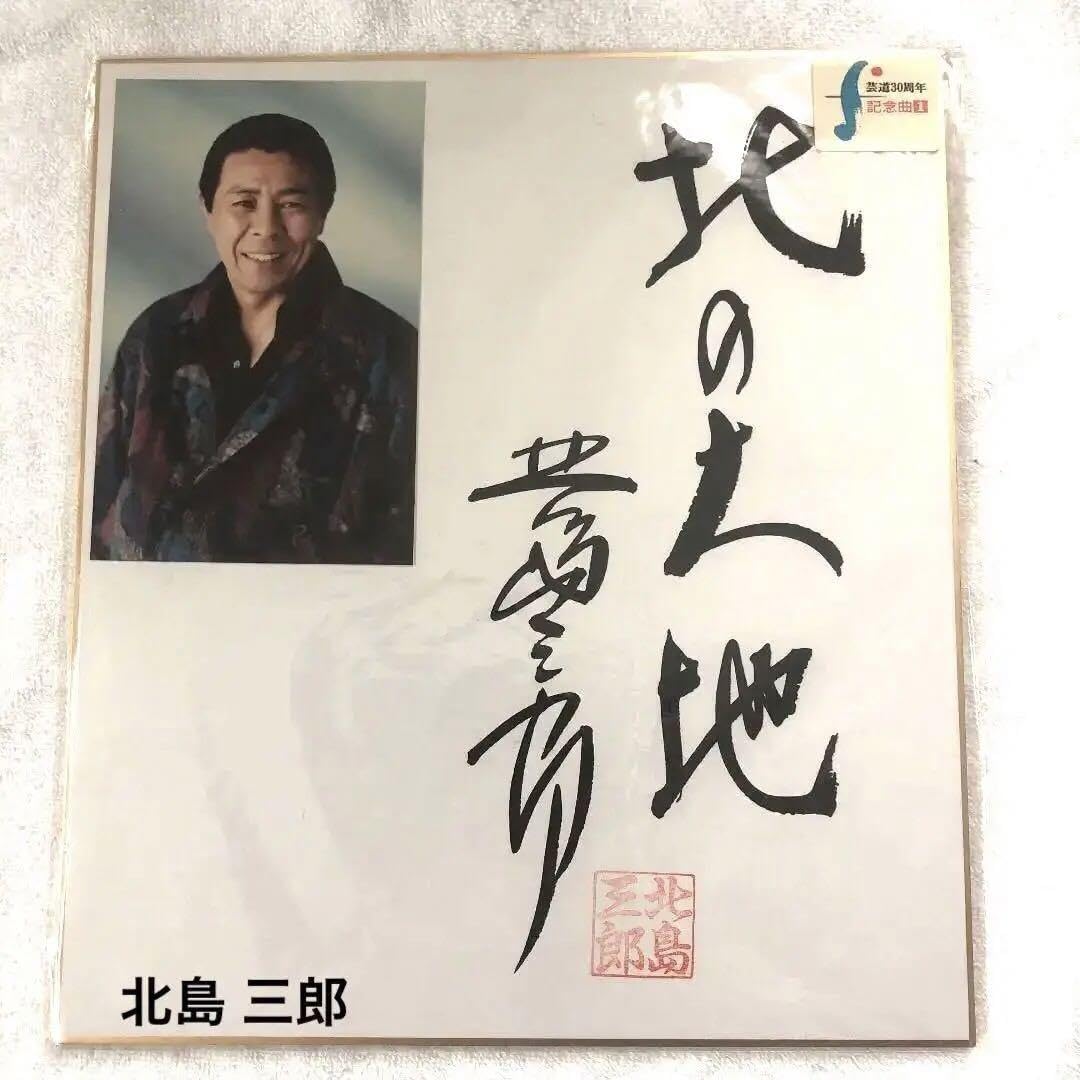 芸道30周年
記念曲1
北の大地
北島三郎
北島
三郎
北島 三郎